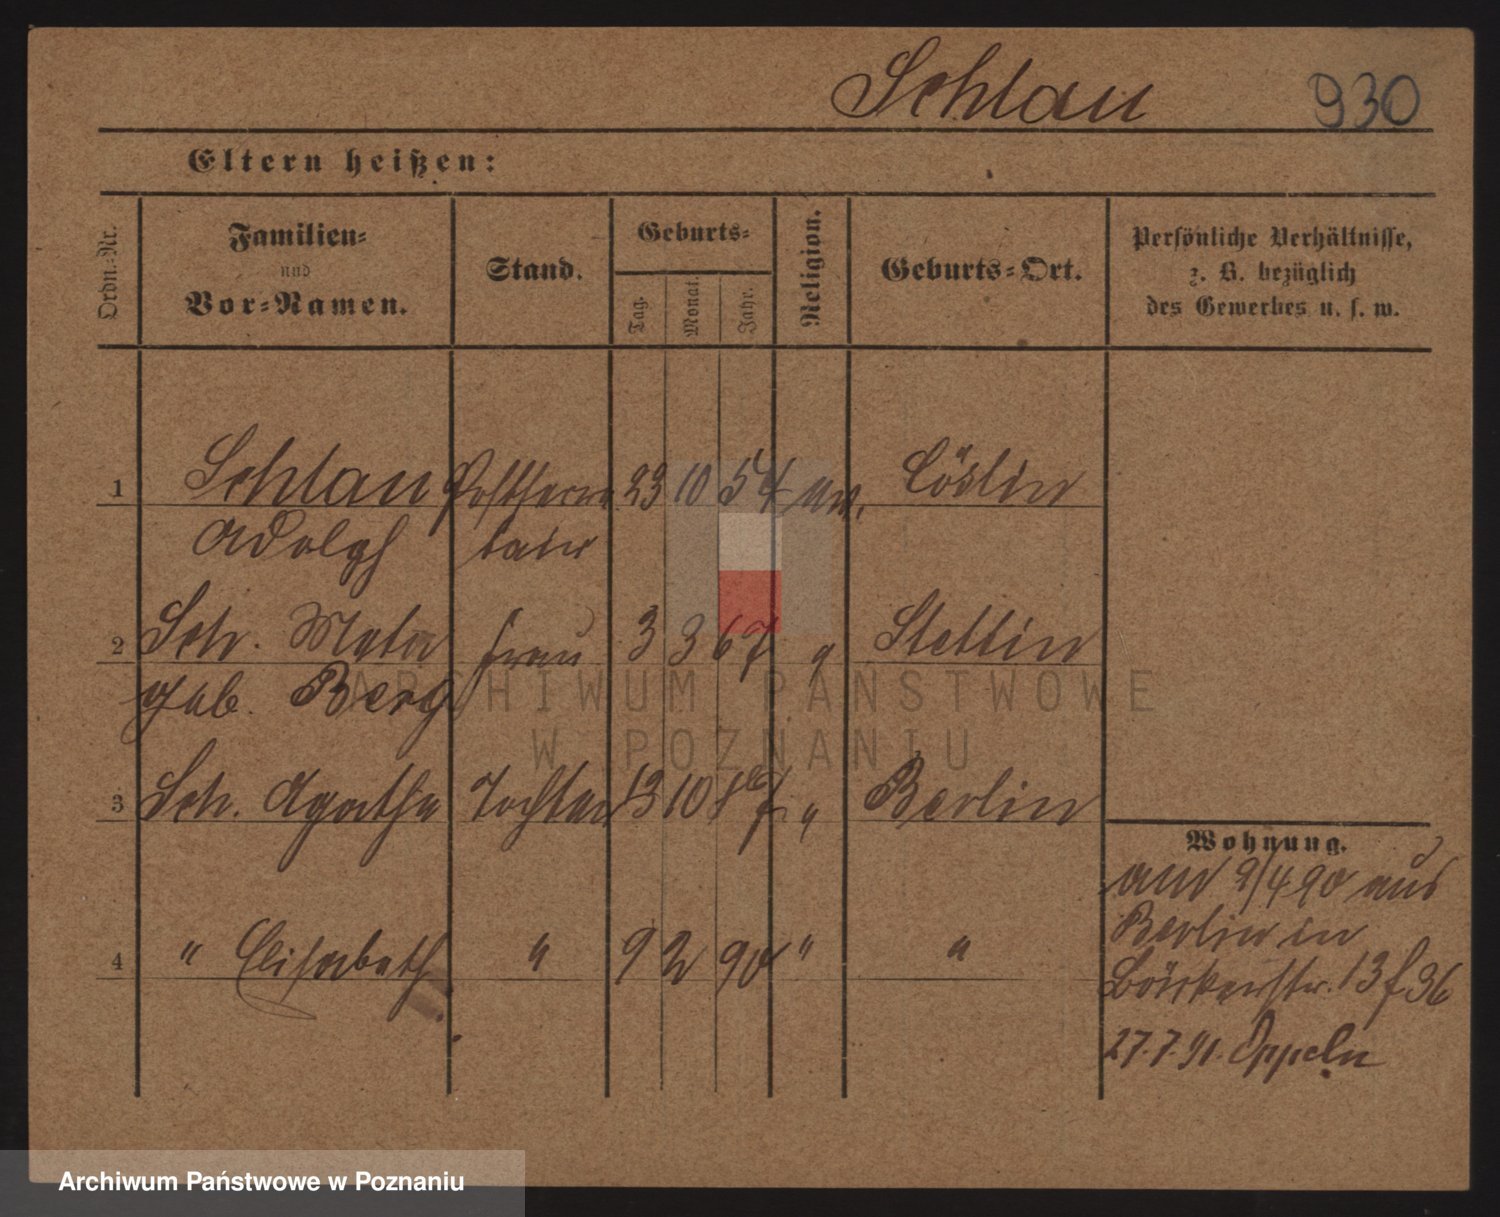 Schlau 930
Eltern heißen:
Ordn.-Nr.
Familien-
und
Vor-Namen.
Stand.
Geburts-
Tag.
Monat.
Jahr.
Religion.
Geburts-Ort.
Persönliche Verhältnisse,
z. B. bezüglich
des Gewerbes u. s. w.
1 Schlau 23 10 54 Cöslin
Adolph
2 Sch. Meta Frau 3 3 67 " Stettin
geb. Berg
3 Sch. Agathe Tochter 13 10 " Berlin
4 " Elisabeth " 9 2 90 " "
Wohnung.
9/4 90 aus
Berlin in
13 f 36
27.7.91. Oppeln
ARCHIWUM PAŃSTWOWE
W POZNANIU
Archiwum Państwowe w Poznaniu